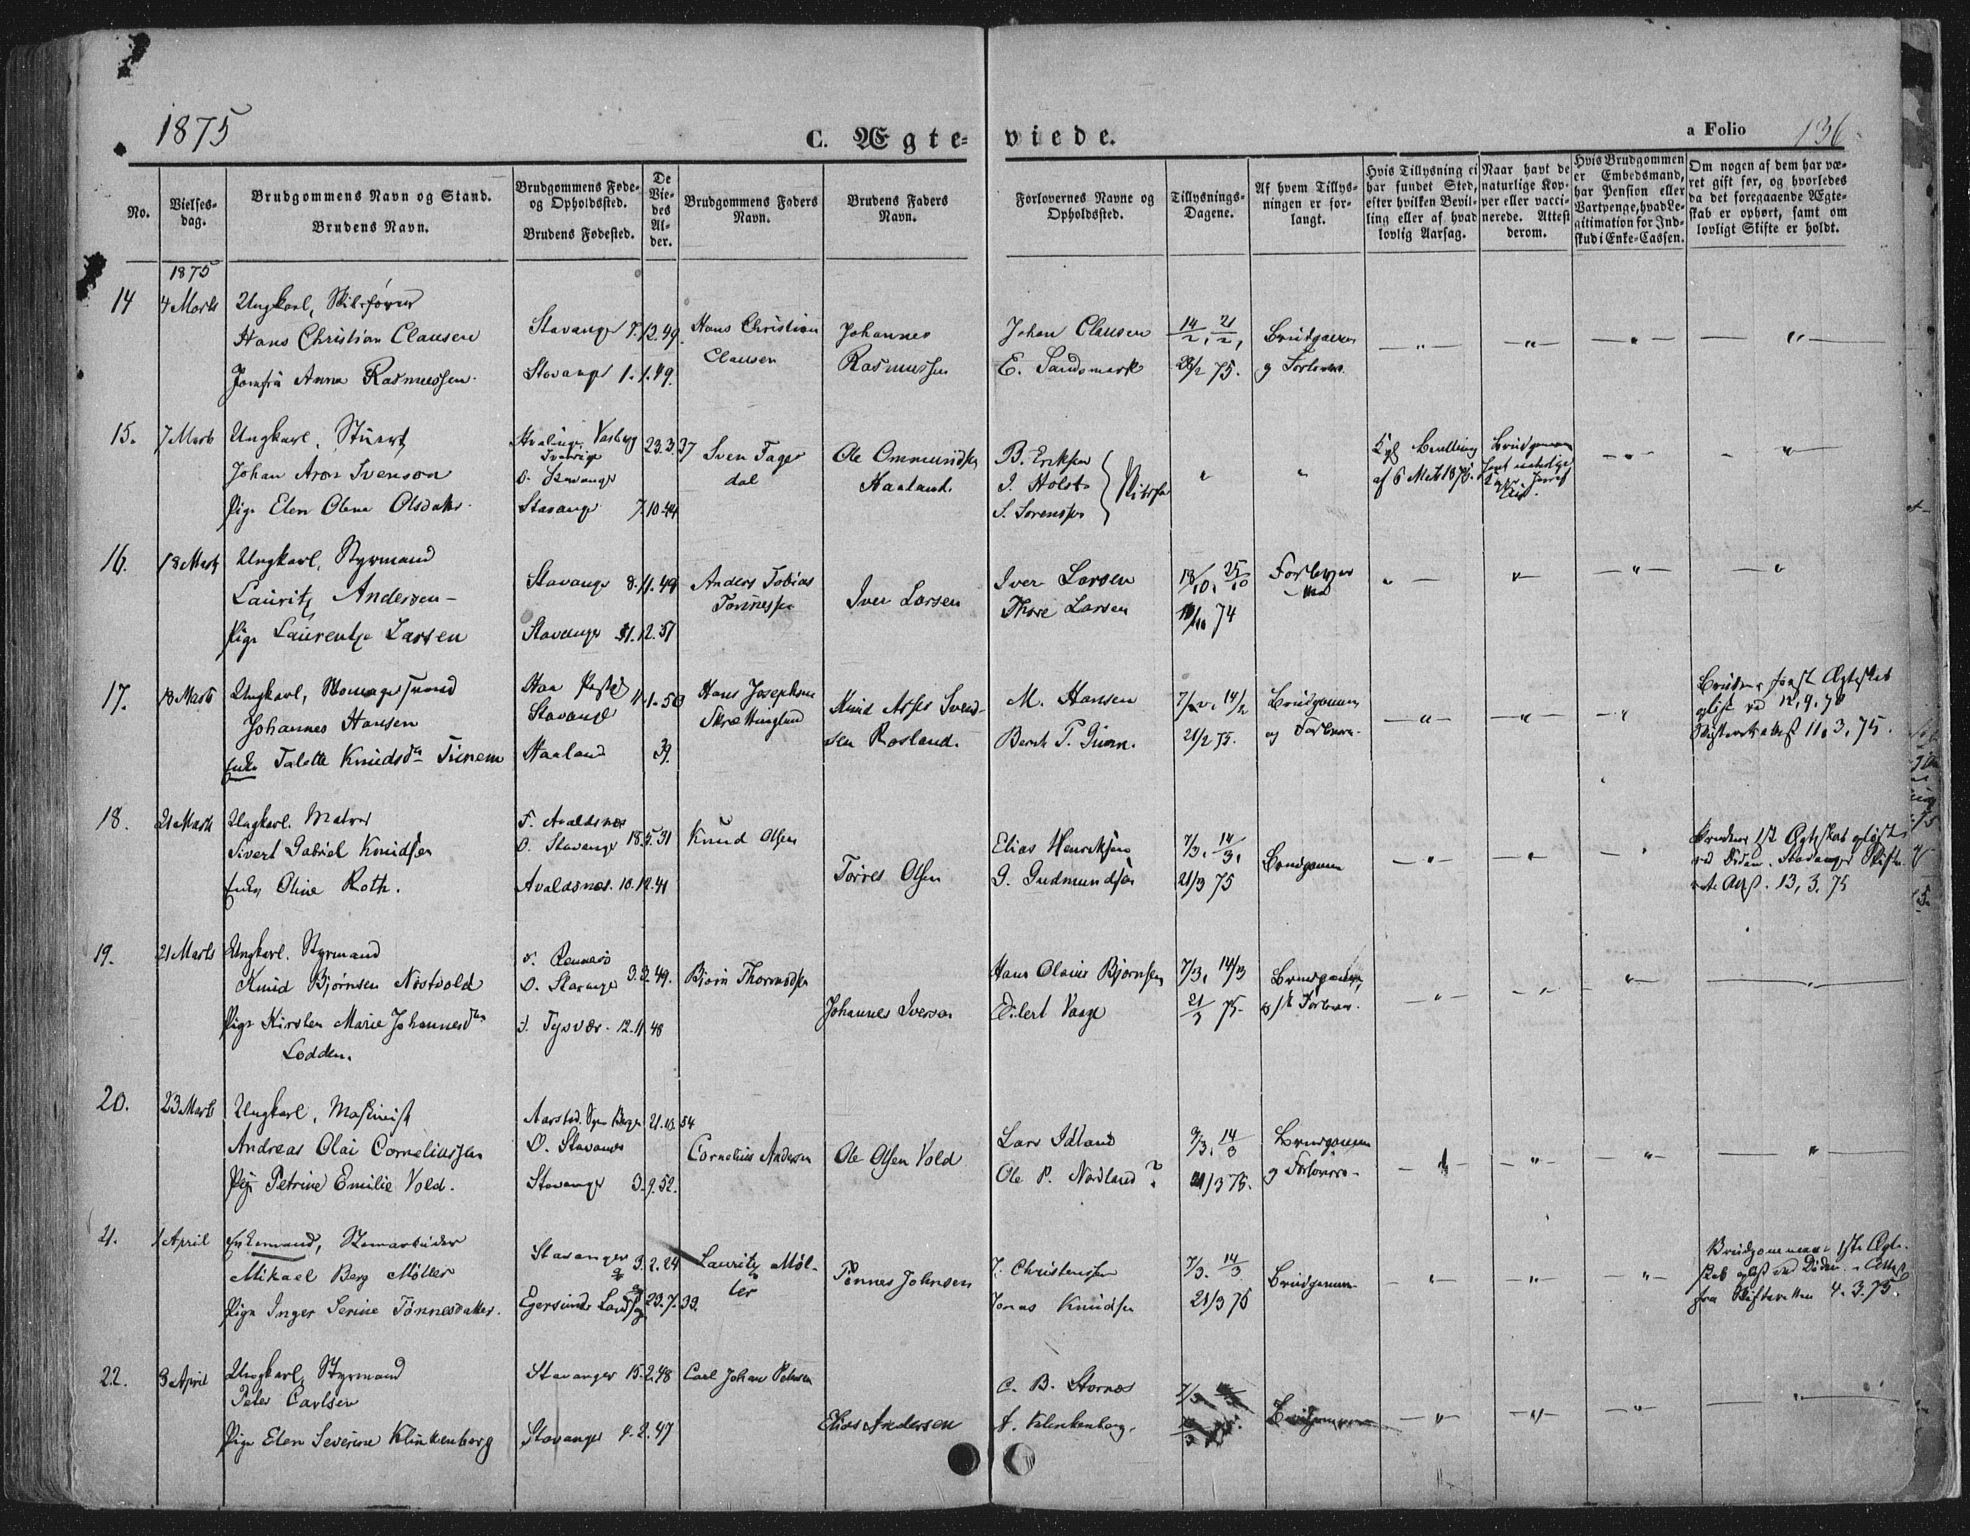 1875
C. Ægte-
viede.
a Folio 136
No.
Vielses-
dag.
Brudgommens Navn og Stand.
Brudens Navn.
Brudgommens Føde-
og Opholdssted.
Brudens Fødested.
De
Vie-
des
Al-
der.
Brudgommens Faders
Navn.
Brudens Faders
Navn.
Forlovernes Navne og
Opholdssted.
Tillysnings-
Dagene.
Af hvem Tillys-
ningen er for-
langt.
Hvis Tillysning ei
har fundet Sted,
efter hvilken Bevil-
ling eller af hvad
lovlig Aarsag.
Naar havt de
naturlige Kop-
per eller vacci-
nerede. Attest
derom.
Hvis Brudgommen
er Embedsmand,
har Pension eller
Vartpenge, hvad Le-
gitimation for Ind-
skud i Enke-Cassen.
Om nogen af dem har væ-
ret gift før, og hvorledes
da det foregaaende Ægte-
skab er ophørt, samt om
lovligt Skifte er holdt.
1875
14 4 Marts Ungkarl, Skibsfører
Hans Christian Clausen Stavanger 7.12.49. Hans Christian
Clausen
Jomfru Anna Rasmussen. Stavanger 1.1.49.
Johannes
Rasmussen
Johan Clausen
E. Sandsmark
14/2, 21/2,
28/2 75.
Brudgommen
og Forlovere
15. 7 Marts Ungkarl, Stuert
Johan Aron Svenson
Pige Elen Olene Olsdatter.
Varberg
Sverige
O. Stavanger 23.3.37
Stavanger 7.10.44
Sven Fager
dal
Ole Ommundsen
Haaland.
B. Eriksen
J. Holst
S. Sørensen
Kgl Bevilling
af 6 Marts 1875.
Brudgommen
havt naturlige
16. 18 Marts Ungkarl, Styrmand
Lauritz Andersen
Pige Laurentze Larsen
Stavanger 8.11.49
Stavanger 31.12.51
Anders Tobias
Tønnessen
Iver Larsen
Iver Larsen
Thore Larsen
18/10, 25/10
1/11 74
Forlover
17. 18 Marts Ungkarl,
Johannes Hansen
Enke Talette Knudsdtr Tunem
Haa
Stavanger 11.1.50
Haaland 39.
Hans Josephsen
Skrettingland
Knud Asser Svend-
sen Rosland.
M. Hansen
Bernt T.
7/2, 14/2
21/2 75.
Brudgommen
og Forlovere.
Brudens første Ægteskab
opløst ved
11.3.75.
18. 21 Marts Ungkarl. Matros
Sivert Gabriel Knudsen
Enke Oline Roth.
F. Avaldsnæs
O. Stavanger 18.5.31
Avaldsnæs. 10.12.41
Knud Olsen
Torres Olsen
Elias Henriksen
G. Gudmundsen
7/3, 14/3,
21/3 75
Brudgommen
Brudens 1ste Ægteskab opløst
ved Døden. Stavanger Skifte-
rets Attest. 13.3.75
19. 21 Marts Ungkarl. Styrmand
Knud Bjørnsen Nøstvold
Pige Kirsten Marie Johannesdtr
Lodden.
F. Rennesø
O. Stavanger 3.3.49.
F. Tysvær. 12.11.48
Bjørn Thormodsen
Johannes Iversen
Hans Olaus Bjørnsen
Eilert Vaage
7/3, 14/3
21/3 75.
Brudgommen
og Forlovere.
20. 23 Marts Ungkarl, Maskinist
Andreas Olai Corneliussen
Pige Petrine Emilie Vold.
Aarstad Bergen 21.10.54
O. Stavanger
Stavanger 3.9.52.
Cornelius Andersen
Ole Olsen Vold
Lars Idland
Ole P. Nordland?
7/3, 14/3
21/3 75.
Brudgommen
og Forlovere
21. 1 April Enkemand, Stenarbeider
Mikael Berg Møller
Pige Inger Serine Tønnesdatter.
Stavanger 3.2.24
Egersunds Landsogn 23.7.33.
Lauritz Møl-
ler
Tønnes Johnsen
J. Christensen
Jonas Knudsen
7/3. 14/3
21/3 75
Brudgommen
Brudgommens 1ste Ægte-
skab opløst ved Døden. Attest
fra Skifteretten 4.3.75.
22. 3 April Ungkarl, Styrmand
Peter Carlsen
Pige Elen Severine Klinkenberg
Stavanger 15.2.48
Stavanger 4.2.47
Carl Johan Petersen
Elias Andersen
C. B. Stornes
A. Klinkenberg.
7/3
Brudgommen